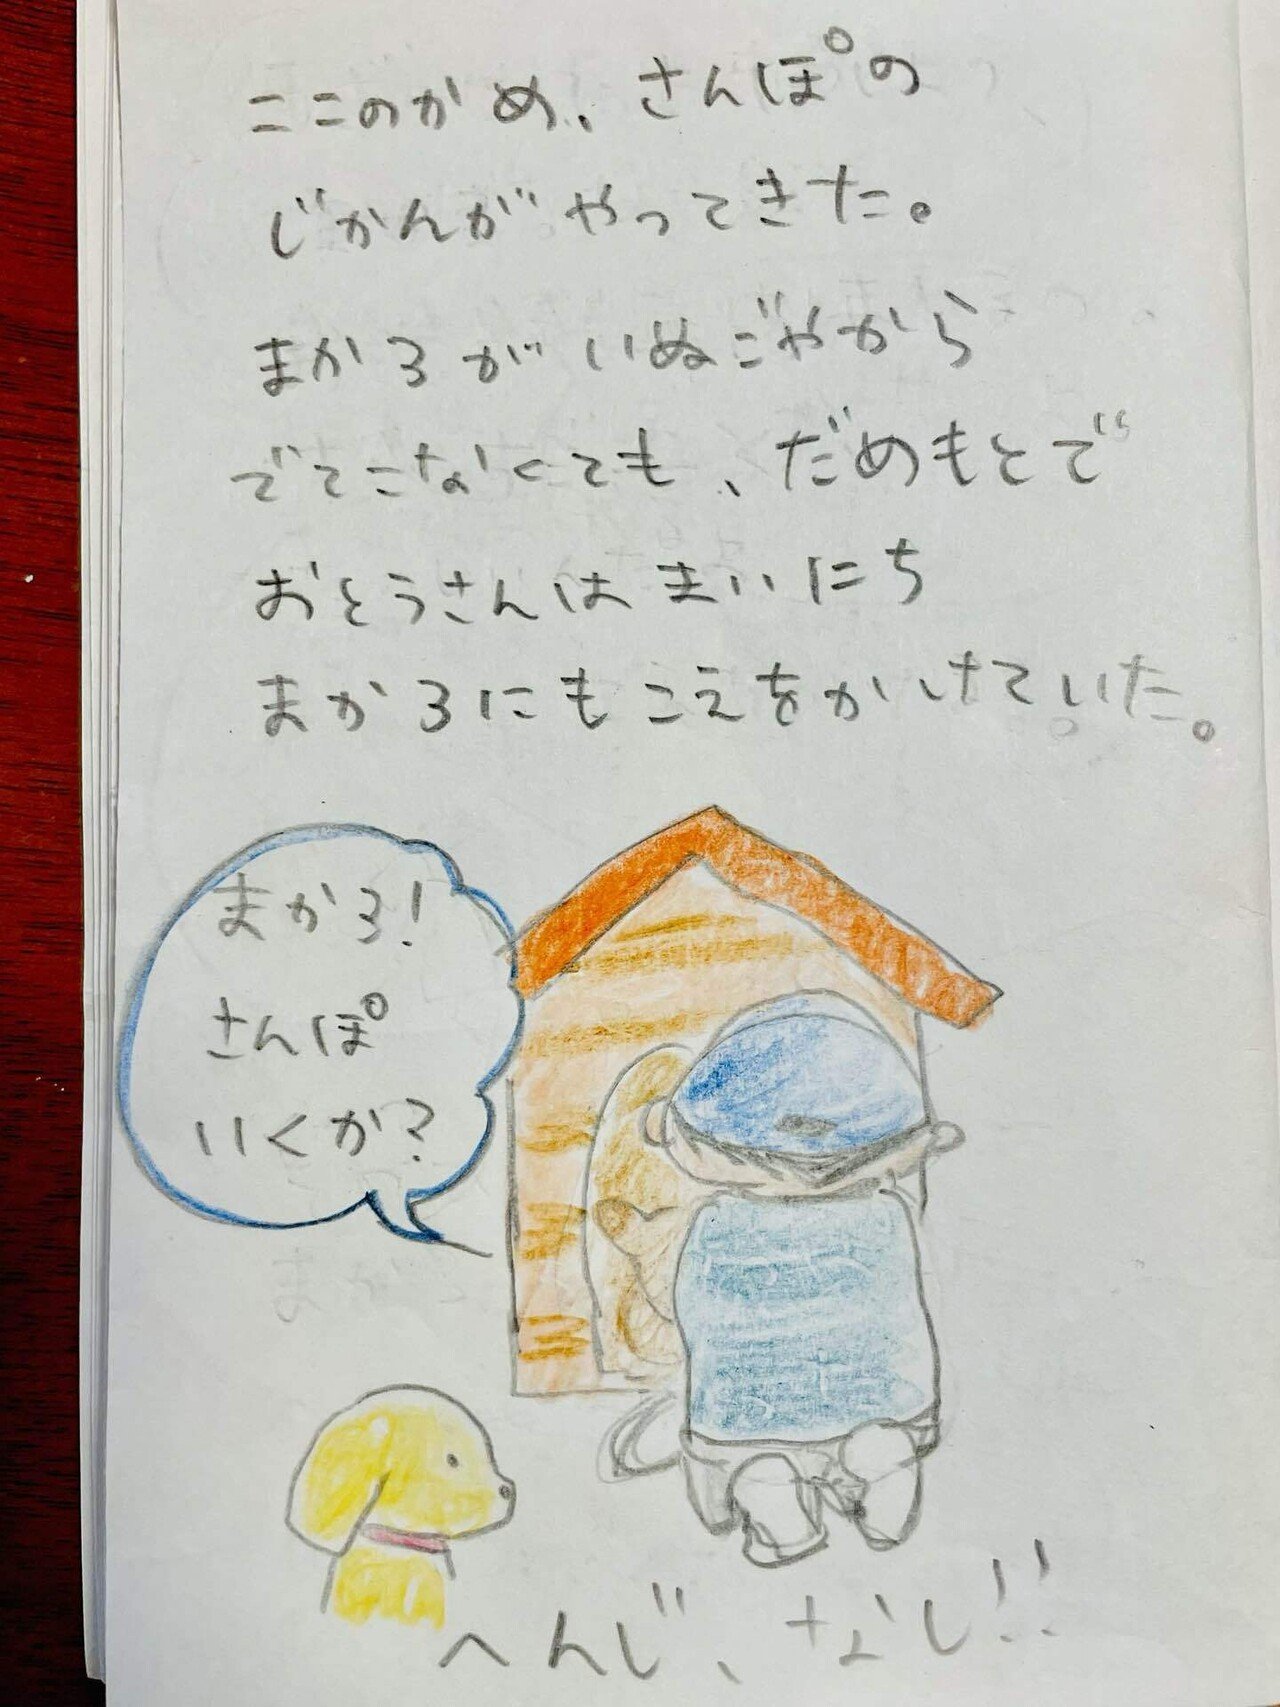 ここのかめ、さんぽの
じかんがやってきた。
まかろがいぬごやから
でてこなくても、だめもとで
おとうさんはまいにち
まかろにもこえをかけていた。
まかろ!
さんぽ
いくか?
へんじ、なし!!